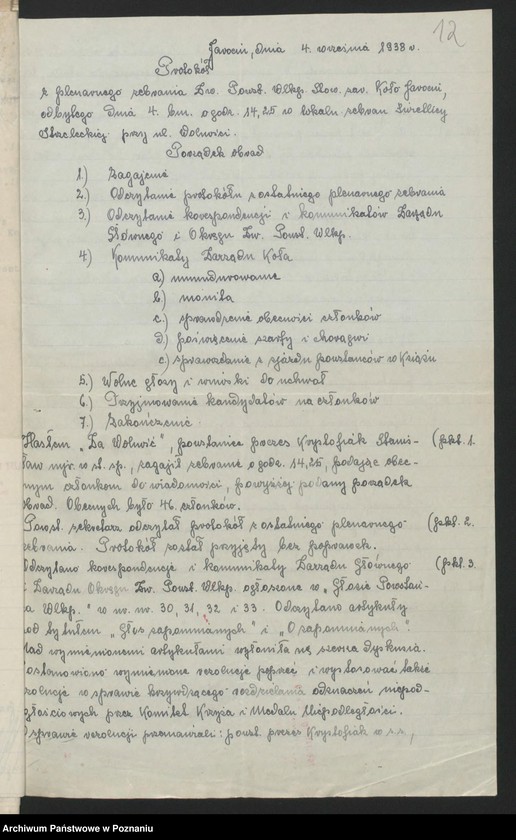 12
Jarocin, dnia 4. września 1938 r.
Protokół
z plenarnego zebrania Zw. Powst. Wlkp. Stow. zar. Koło Jarocin,
odbytego dnia 4. bm. o godz. 14,25 w lokalu zebrań Świetlicy
Strzeleckiej przy ul. Wolności.
Porządek obrad
1.) Zagajenie
2.) Odczytanie protokółu z ostatniego plenarnego zebrania
3.) Odczytanie korespondencji i komunikatów Zarządu
Głównego i Okręgu Zw. Powst. Wlkp.
4.) Komunikaty Zarządu Koła
a) umundurowanie
b) monita
c.) sprawdzenie obecności członków
d) poświęcenie szarfy i chorągwi
e) sprawozdanie z zjazdu powstańców w Książu
5.) Wolne głosy i wnioski do uchwał
6.) Przyjmowanie kandydatów na członków
7.) Zakończenie.
Hasłem „Za Wolność", powstaniec prezes Krystofiak Stanis- (pkt. 1.
ław mjr. w st. sp., zagaił zebranie o godz. 14,25, podając obec-
nym członkom do wiadomości, powyżej podany porządek
obrad. Obecnych było 46. członków.
Powst. sekretarz odczytał protokół z ostatniego plenarnego (pkt. 2.
zebrania. Protokół został przyjęty bez poprawek.
Odczytano korespondencje i komunikaty Zarządu Głównego (pkt. 3.
i Zarządu Okręgu Zw. Powst. Wlkp. ogłoszone w „Głosie Powstań-
ca Wlkp." w nr. nr. 30, 31, 32 i 33. Odczytano artykuły
pod tytułem „Głos zapomnianych" i „O zapomnianych".
Nad wymienionemi artykułami wyłoniła się szersza dyskusja.
Postanowiono wymienione rezolucje poprzeć i wystosować także
rezolucję w sprawie krzywdzącego rozdzielania odznaczeń niepod-
ległościowych przez Komitet Krzyża i Medalu Niepodległości.
W sprawie rezolucji przemawiali: powst. prezes Krystofiak w s.s.,
Archiwum Państwowe w Poznaniu